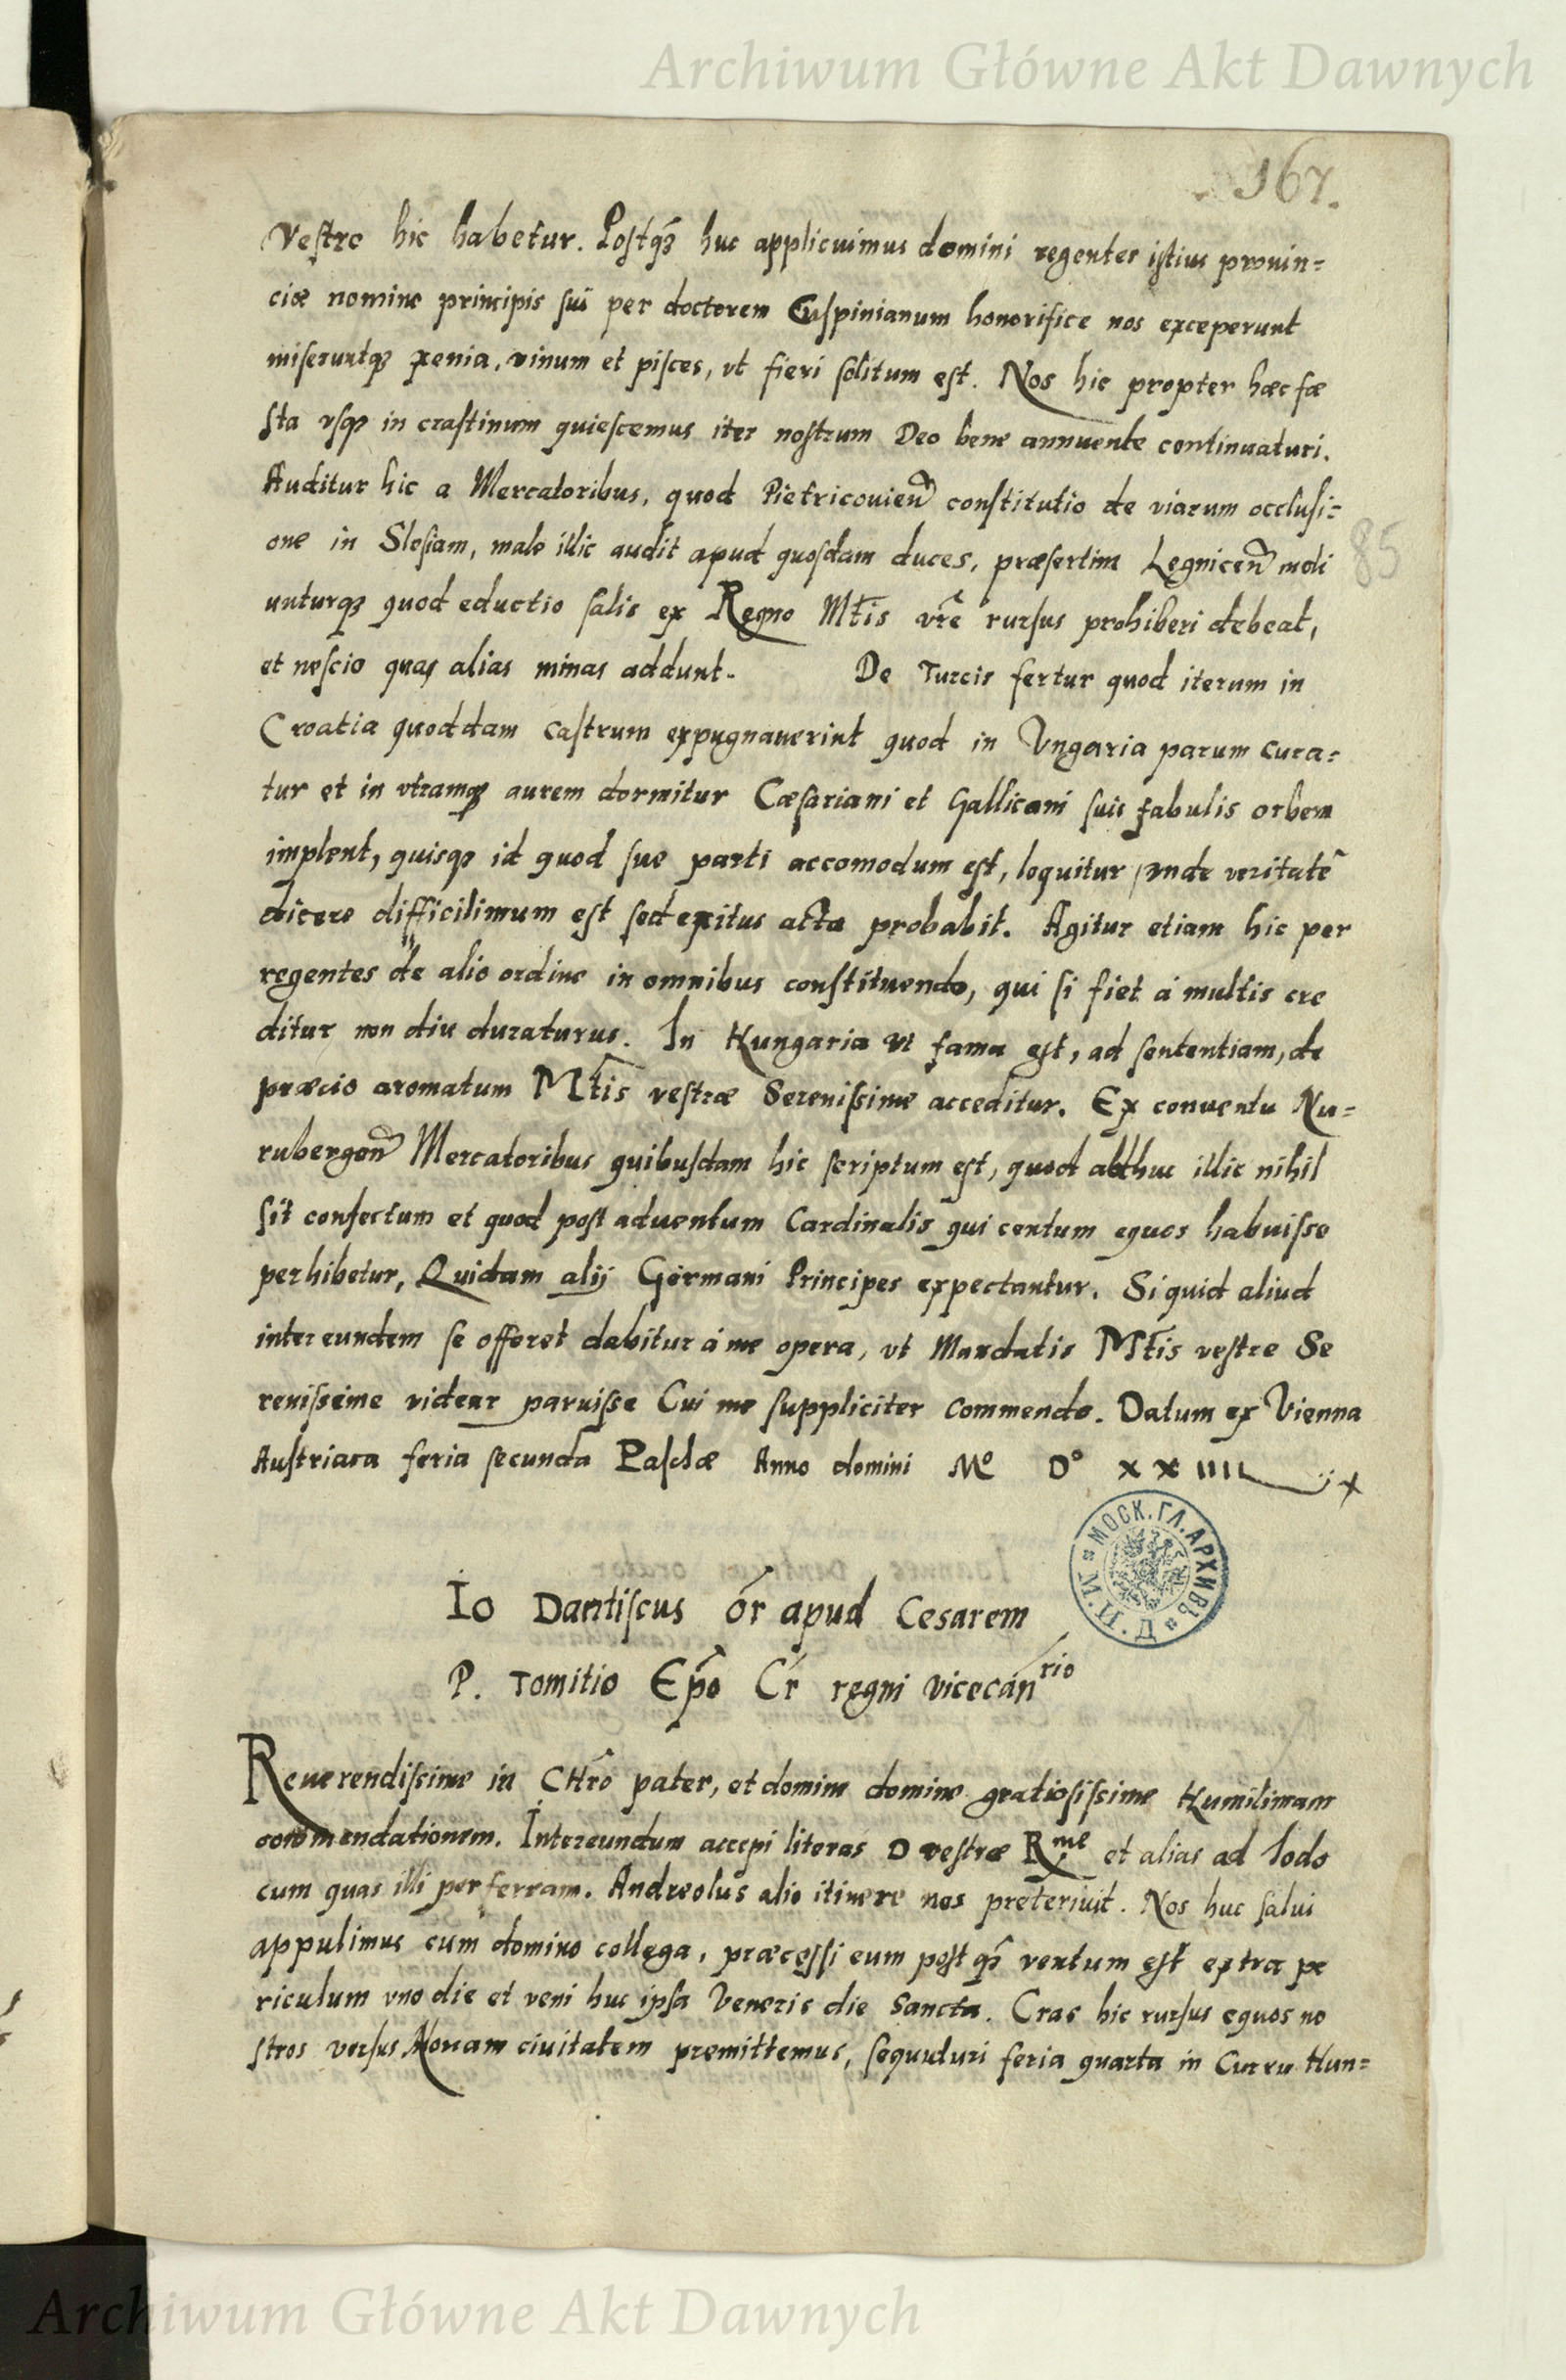 Archiwum Główne Akt Dawnych
167.
Vestre hic habetur. Postq̃ʒ huc applicuimus domini regentes istius provin=
ciæ nomine principis sui per doctorem Cuspinianum honorifice nos exceperunt
miseruntqʒ xenia, vinum et pisces, vt fieri solitum est. Nos hic propter hæc fæ
sta vsqʒ in crastinum quiescemus iter nostrum Deo bene annuente continuaturi.
Auditur hic a Mercatoribus, quod Pietricouien̄ constitutio de viarum occlusi=
one in Slesiam, male illic audit apud quosdam duces, præsertim Legnicen̄ moli
85
unturqʒ quod eductio salis ex Regno Mt̃is vr̃e rursus prohiberi debeat,
et nescio quas alias minas addunt. De Turcis fertur quod iterum in
Croatia quoddam castrum expugnauerint quod in Vngaria parum cura=
tur et in vtramqʒ aurem dormitur Cæsariani et Gallicani suis fabulis orbem
implent, quisqʒ id quod sue parti accomodum est, loquitur, vnde veritatẽ
dicere difficilimum est sed exitus acta probabit. Agitur etiam hic per
regentes de alio ordine in omnibus constituendo, qui si fiet á multis cre
ditur non diu duraturus. In Hungaria vt fama est, ad sententiam, de
præcio aromatum Mt̃is vestræ Serenissime acceditur. Ex conuentu Nu=
rubergen̄ Mercatoribus quibusdam hic scriptum est, quod adhuc illic nihil
sit confectum et quod post aduentum Cardinalis qui centum equos habuisse
perhibetur, Quidam alij Germani Principes expectantur. Si quid aliud
inter eundem se offeret dabitur á me opera, vt Mandatis Mt̃is vestre Se
renisseime videar paruisse Cui me suppliciter commendo. Datum ex Vienna
Austriaca feria secunda Paschæ Anno domini Mº Dº xxiiii
Io Dantiscus or̃ apud Cesarem
P. Tomitio Ep̃o Cr̃ regni vicecan̄rio
МОСК. ГЛ. АРХИВЪ М. И. Д.
Reuerendissime in CHr̃o pater, et domine domine gratiosissime Humilimam
commendationem. Intereundum accepi literas D vestræ Rme et alias ad Iodo
cum quas illi perferram. Andreolus alio itinere nos preteriuit. Nos huc salui
appulimus cum domino collega, præcessi eum post q̃ʒ ventum est extra pe
riculum vno die et veni huc ipsa Veneris die Sancta. Cras hic rursus equos no
stros versus Nouam ciuitatem premittemus, sequuturi feria quarta in Curru Hun=
Archiwum Główne Akt Dawnych